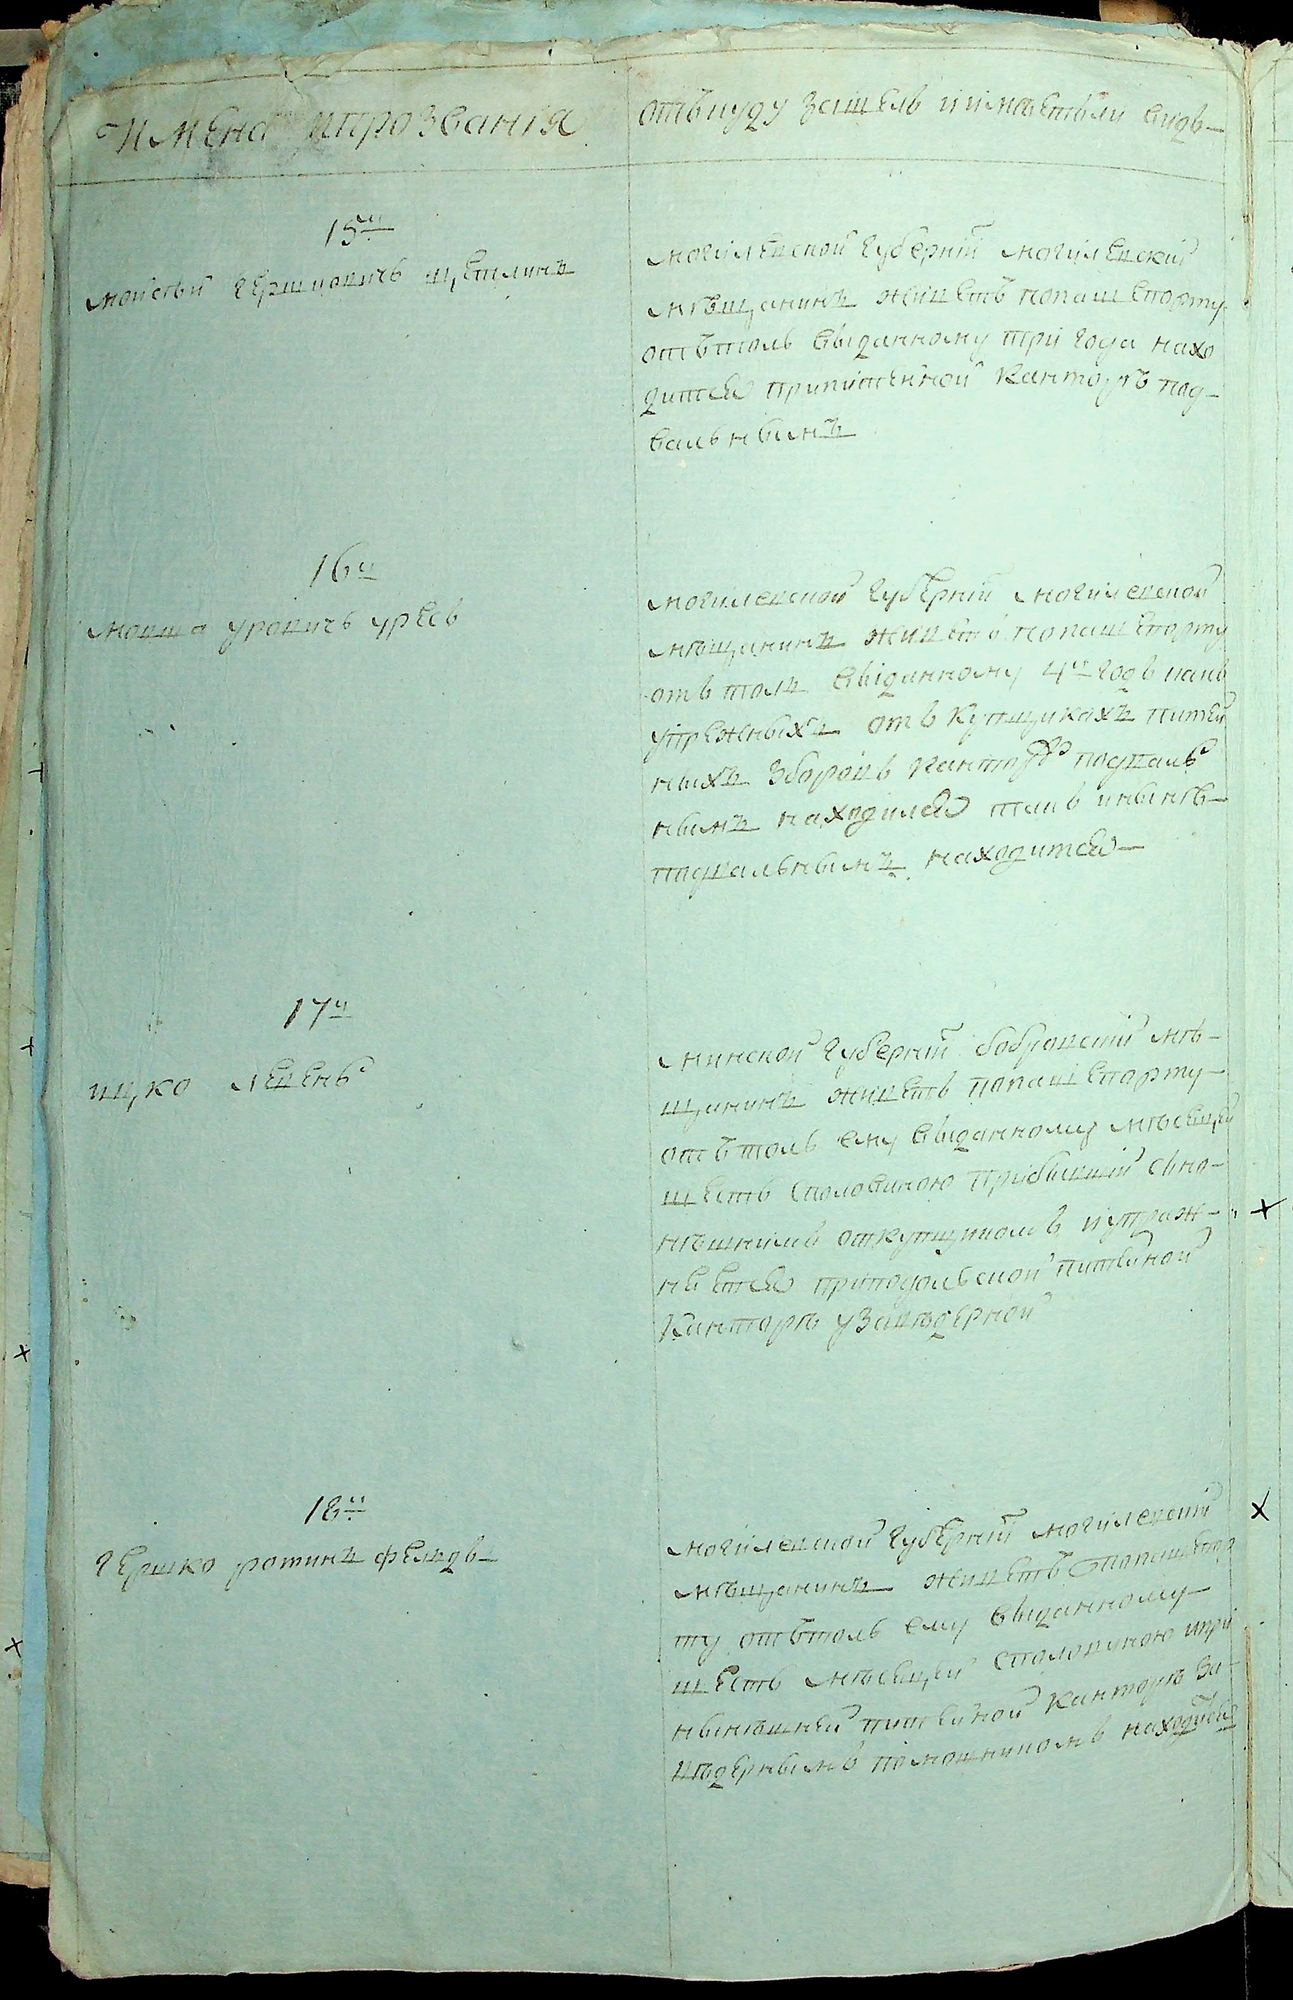 Имена и прозвания
отъкуду зашелъ и имѣетъли видъ
15й
Моисѣй Гершовичъ Цетлинъ
Могилевской губернїи могилевский
мѣщанинъ живетъ попашепорту
отътоль выданному три года нахо
дитса припитейной канторѣ под-
валнымъ
16й
Мовша Уровичъ Уревъ
Могилевской губернїи могилевской
мѣщанинъ живетъ попашепорту
отътоль выданному 4й годъ какъ
упрежныхъ отъкупщиковъ питей
ныхъ зборовъ канторѣ подваль
нымъ находилса такъ инынѣ
подвальнымъ находитса
17й
Ицко Левенъ
Минской губернїи бобровский мѣ-
щанинъ живетъ попашепорту
отътоль ему выданному мѣсецей
шесть споловиною прибывший сно-
нѣшнимъ откупщикомъ иупраж-
няетса приподольской питейной
канторѣ узаведерной
18й
Гершко ротинъфелдъ
Могилевской губернїи могилевский
мѣщанинъ живетъ попашепор
ту отътоль ему выданному
шесть мѣсецей споловиною ипри
нынѣшней питейной канторѣ за-
ведернымъ помошникомъ находитса